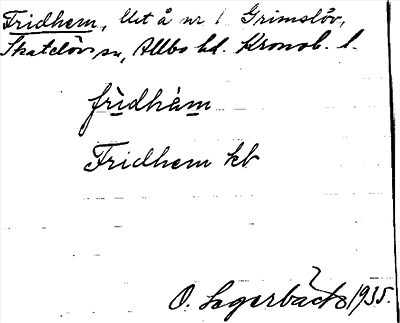 Fridhem, lht å nr 1 Grimslöv,
Skatelöv sn, Allbo hd. Kronob. l.
fridhèm
Fridhem kb
O. Lagerbäck 1935.